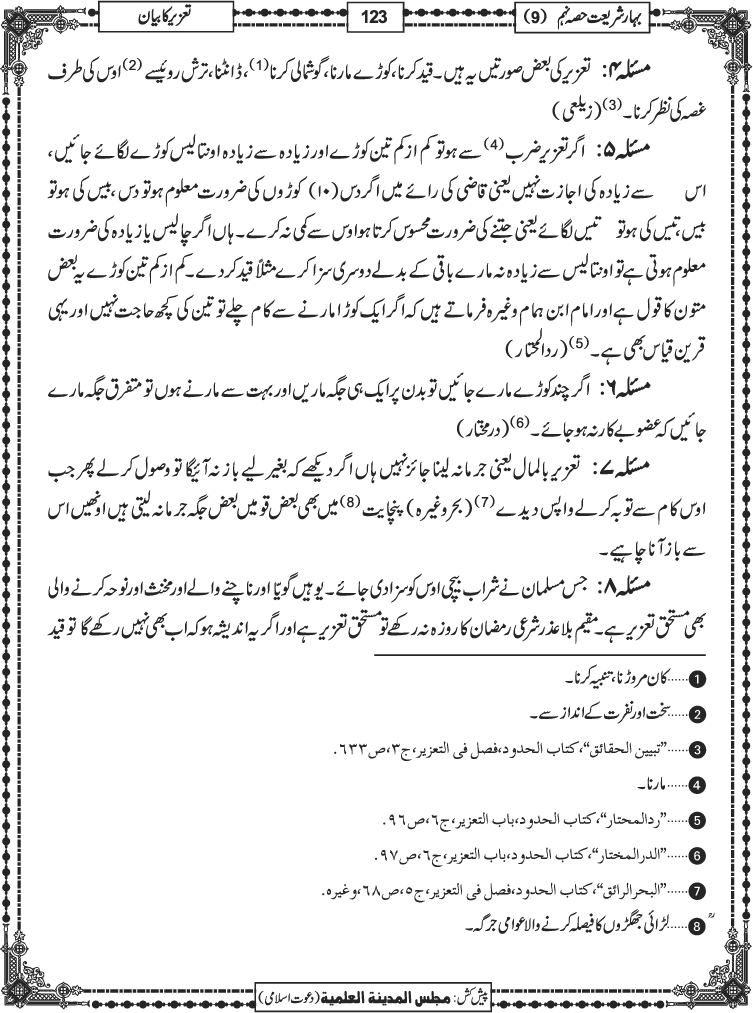 بہار شریعت حصہ نہم (9)
123
تعزیر کا بیان
مسئلہ ۴: تعزیر کی بعض صورتیں یہ ہیں۔ قید کرنا، کوڑے مارنا، گوشمالی کرنا(1)، ڈانٹنا، ترش روئی سے(2) اوس کی طرف
غصہ کی نظر کرنا۔(3) (زیلعی)
مسئلہ ۵: اگر تعزیر ضرب(4) سے ہو تو کم از کم تین کوڑے اور زیادہ سے زیادہ اونتالیس کوڑے لگائے جائیں،
اس سے زیادہ کی اجازت نہیں یعنی قاضی کی رائے میں اگر دس (۱۰) کوڑوں کی ضرورت معلوم ہو تو دس، بیس کی ہو تو
بیس، تیس کی ہو تو تیس لگائے یعنی جتنے کی ضرورت محسوس کرتا ہو اوس سے کمی نہ کرے۔ ہاں اگر چالیس یا زیادہ کی ضرورت
معلوم ہوتی ہے تو اونتالیس سے زیادہ نہ مارے باقی کے بدلے دوسری سزا کرے مثلاً قید کر دے۔ کم از کم تین کوڑے یہ بعض
متون کا قول ہے اور امام ابن ہمام وغیرہ فرماتے ہیں کہ اگر ایک کوڑا مارنے سے کام چلے تو تین کی کچھ حاجت نہیں اور یہی
قرین قیاس بھی ہے۔(5) (ردالمحتار)
مسئلہ ۶: اگر چند کوڑے مارے جائیں تو بدن پر ایک ہی جگہ ماریں اور بہت سے مارنے ہوں تو متفرق جگہ مارے
جائیں کہ عضو بے کار نہ ہو جائے۔(6) (درمختار)
مسئلہ ۷: تعزیر بالمال یعنی جرمانہ لینا جائز نہیں ہاں اگر دیکھے کہ بغیر لیے باز نہ آئیگا تو وصول کر لے پھر جب
اوس کام سے توبہ کر لے واپس دیدے(7) (بحر وغیرہ) پنچایت(8) میں بھی بعض قومیں بعض جگہ جرمانہ لیتی ہیں اونھیں اس
سے باز آنا چاہیے۔
مسئلہ ۸: جس مسلمان نے شراب بیچی اوس کو سزا دی جائے۔ یوہیں گویّا اور ناچنے والے اور مخنث اور نوحہ کرنے والی
بھی مستحق تعزیر ہے۔ مقیم بلا عذر شرعی رمضان کا روزہ نہ رکھے تو مستحق تعزیر ہے اور اگر یہ اندیشہ ہو کہ اب بھی نہیں رکھے گا تو قید
1......کان مروڑنا، تنبیہ کرنا۔
2......سخت اور نفرت کے انداز سے۔
3......”تبیین الحقائق“، کتاب الحدود، فصل فی التعزیر، ج۳، ص۶۳۳.
4......مارنا۔
5......”ردالمحتار“، کتاب الحدود، باب التعزیر، ج۶، ص۹۶.
6......”الدرالمختار“، کتاب الحدود، باب التعزیر، ج۶، ص۹۷.
7......”البحرالرائق“، کتاب الحدود، فصل فی التعزیر، ج۵، ص۶۸، وغیرہ.
8......لڑائی جھگڑوں کا فیصلہ کرنے والا عوامی جرگہ۔
پیش کش: مجلس المدینۃ العلمیۃ (دعوت اسلامی)